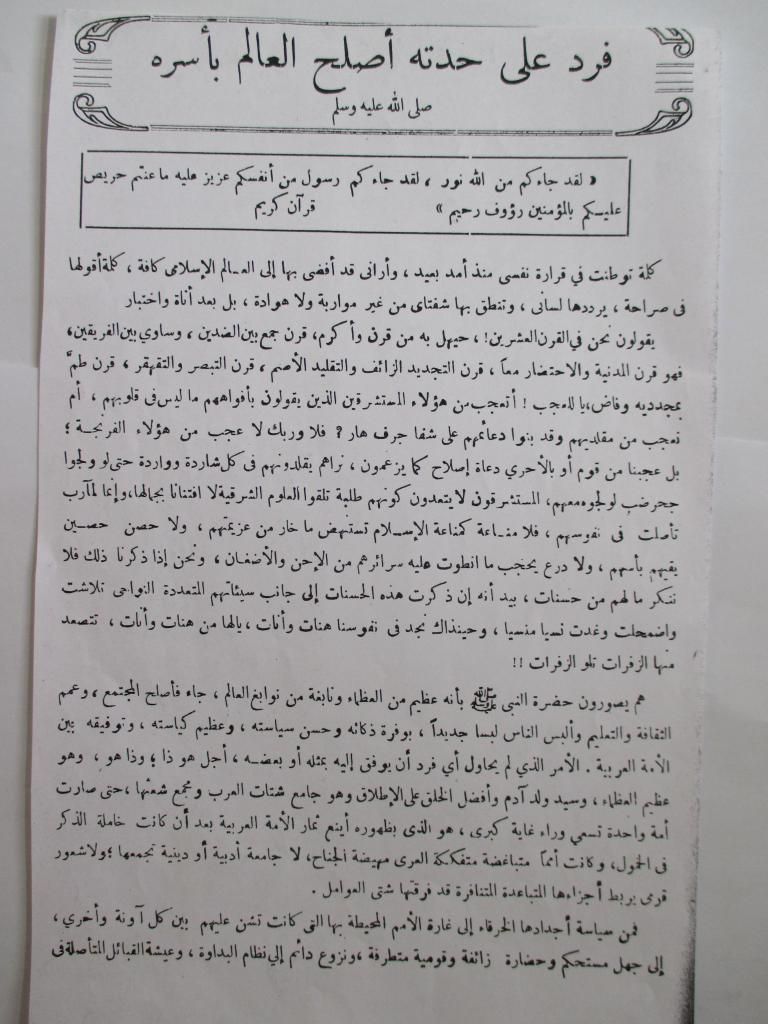 فرد على حدته أصلح العالم بأسره
صلى الله عليه وسلم
« لقد جاءكم من الله نور ، لقد جاءكم رسول من أنفسكم عزيز عليه ما عنتم حريص
عليكم بالمؤمنين رؤوف رحيم » قرآن كريم
كلمة توطنت في قرارة نفسى منذ أمد بعيد ، وأرانى قد أفضى بها إلى العالم الإسلامى كافة ، كلمة أقولها
فى صراحة ، يرددها لسانى ، وتنطق بها شفتاى من غير مواربة ولا هوادة ، بل بعد أناة واختبار
يقولون نحن في القرن العشرين! ، حيهل به من قرن وأكرم، قرن جمع بين الضدين ، وساوي بين الفريقين،
فهو قرن المدنية والاحتضار معاً ، قرن التجديد الزائف والتقليد الأصم ، قرن التبصر والتقهقر ، قرن طمَّ
بمجدديه وفاض، يا للعجب ! أتعجب من هؤلاء المستشرقين الذين يقولون بأفواههم ما ليس فى قلوبهم ، أم
تعجب من مقلديهم وقد بنوا دعائمهم على شفا جرف هار ؟ فلا وربك لا عجب من هؤلاء الفرنجة ؛
بل عجبنا من قوم أو بالأحري دعاة إصلاح كما يزعمون ، نراهم يقلدونهم فى كل شاردة وواردة حتى لو ولجوا
جحر ضب لولجوه معهم، المستشرقون لا يتعدون كونهم طلبة تلقوا العلوم الشرقية لا افتتانا بجمالها، وإنما لمآرب
تأصلت فى نفوسهم ، فلا مناعة كمناعة الإسلام تستنهض ما خار من عزيمتهم ، ولا حصن حصين
يقيهم بأسهم ، ولا درع يحجب ما انطوت عليه سرائرهم من الإحن والأضغان ، ونحن إذا ذكرنا ذلك فلا
ننكر ما لهم من حسنات ، بيد أنه إن ذكرت هذه الحسنات إلى جانب سيئاتهم المتعددة النواحى تلاشت
واضمحلت وغدت نسيا منسيا ، وحينذاك نجد فى نفوسنا هنات وأنات ، يالها من هنات وأنات ، تتصعد
منها الزفرات تلو الزفرات !!
هم يصورون حضرة النبي ﷺ بأنه عظيم من العظماء ونابغة من نوابغ العالم ، جاء فأصلح المجتمع ، وعمم
الثقافة والتعليم وألبس الناس لبسا جديداً ، بوفرة ذكائه وحسن سياسته ، وعظيم كياسته ، وتوفيقه بين
الأمة العربية . الأمر الذي لم يحاول أي فرد أن يوفق إليه بمثله أو بعضه ، أجل هو ذا ؛ وذا هو ، وهو
عظيم العظماء ، وسيد ولد آدم وأفضل الخلق على الإطلاق وهو جامع شتات العرب ومجمع شعثها ، حتى صارت
أمة واحدة تسعي وراء غاية كبرى ، هو الذى بظهوره أينع ثمار الأمة العربية بعد أن كانت خاملة الذكر
فى الخمول، وكانت أمماً متباغضة متفككة العرى مهيضة الجناح، لا جامعة أدبية أو دينية تجمعها ؛ ولا شعور
قومى يربط أجزاءها المتباعدة المتنافرة قد فرقتها شتى العوامل .
فمن سياسة أجدادها الخرقاء إلى غارة الأمم المحيطة بها التى كانت تشن عليهم بين كل آونة وأخري ،
إلى جهل مستحكم وحضارة زائفة وقومية متطرفة ، ونزوع دائم إلي نظام البداوة ، وعيشة القبائل المتأصلة فى